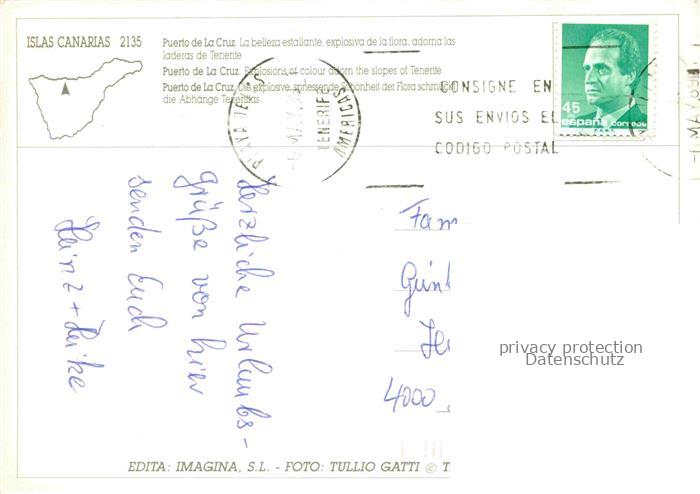 ISLAS CANARIAS 2135
Puerto de La Cruz. La belleza estallante, explosiva de la flora, adorna las
laderas de Tenerife.
Puerto de La Cruz. Explosions of colour adorn the slopes of Tenerife.
Puerto de La Cruz. Die explosive, spriessende Schönheit der Flora schmückt
die Abhänge Teneriffas.
PLAYA DE LAS AMERICAS
TENERIFE
CONSIGNE EN
SUS ENVIOS EL
CODIGO POSTAL
45
españa correos
Herzliche Urlaubs-
grüße von hier
senden Euch
Heinz + Heike
Fam
Günt
He
4000
privacy protection
Datenschutz
EDITA: IMAGINA, S.L. - FOTO: TULLIO GATTI © T